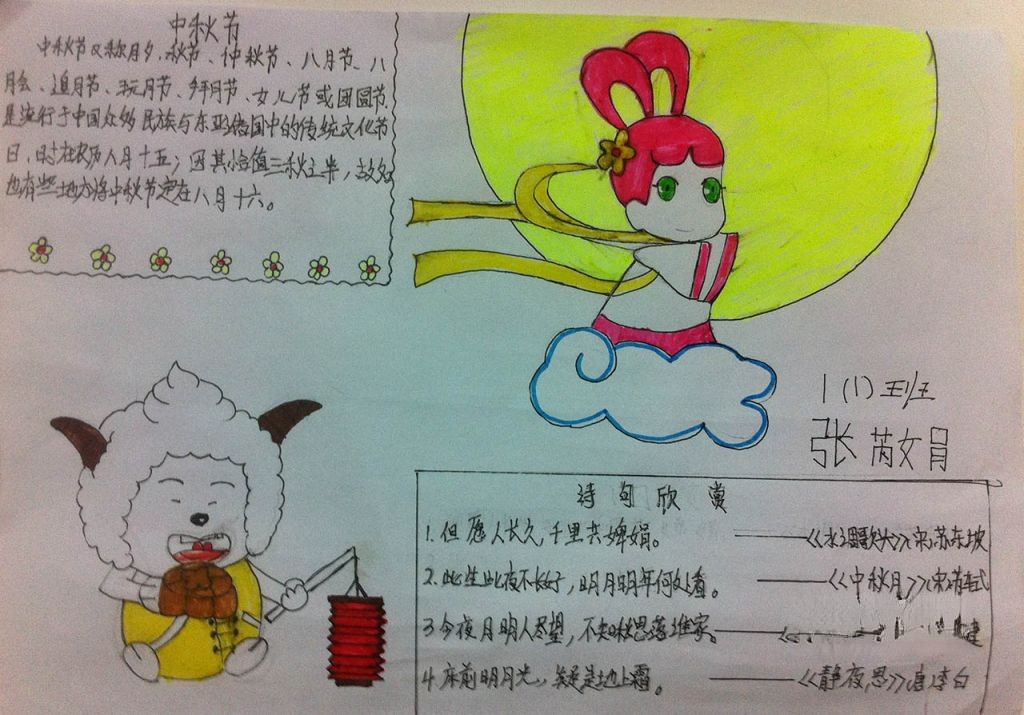 中秋节
中秋节又称月夕、秋节、仲秋节、八月节、八
月会、追月节、玩月节、拜月节、女儿节或团圆节
是流行于中国众多民族与东亚诸国中的传统文化节
日，时在农历八月十五；因其恰值三秋之半，故名
也有些地方将中秋节定在八月十六。
1(1)班
张芮文娟
诗句欣赏
1.但愿人长久,千里共婵娟。——《水调歌头》宋·苏东坡
2.此生此夜不长好，明月明年何处看。——《中秋月》宋·苏轼
3今夜月明人尽望，不知秋思落谁家。——《 建
4.床前明月光，疑是地上霜。——《静夜思》唐李白